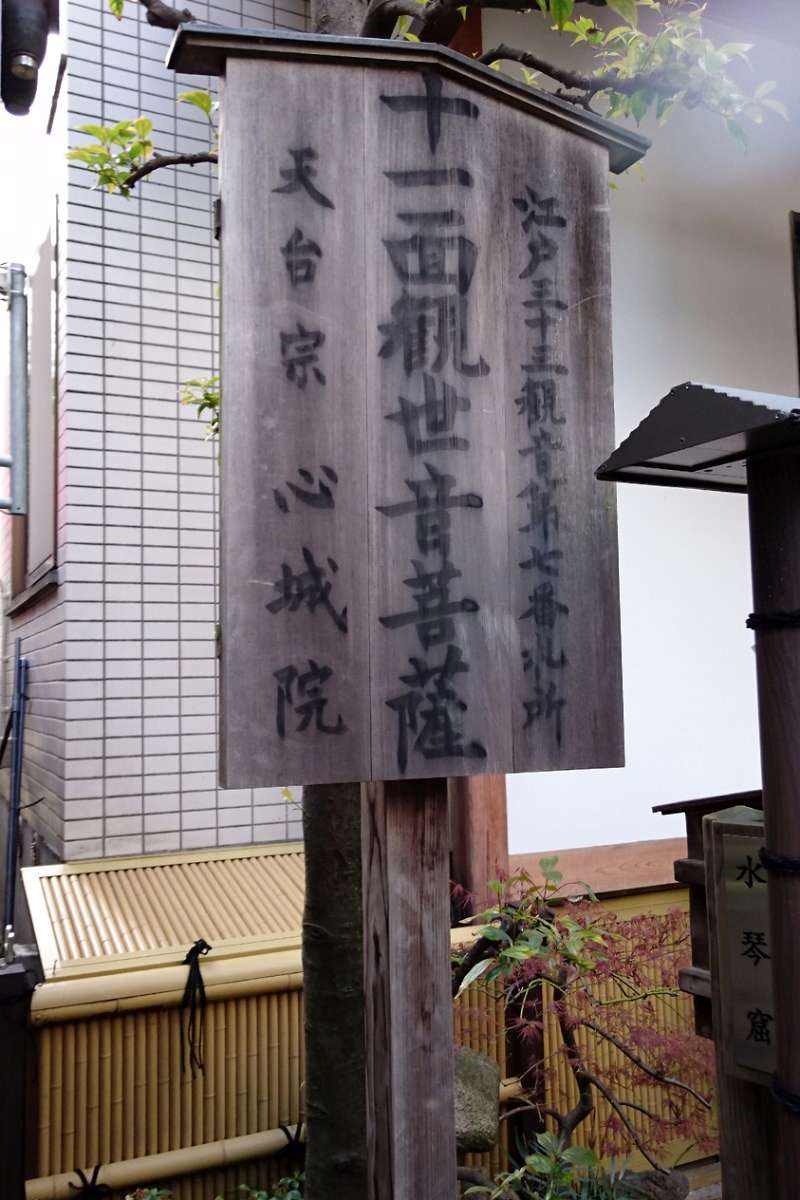 江戸三十三観音第七番札所
十一面觀世音菩薩
天台宗 心城院
水琴窟